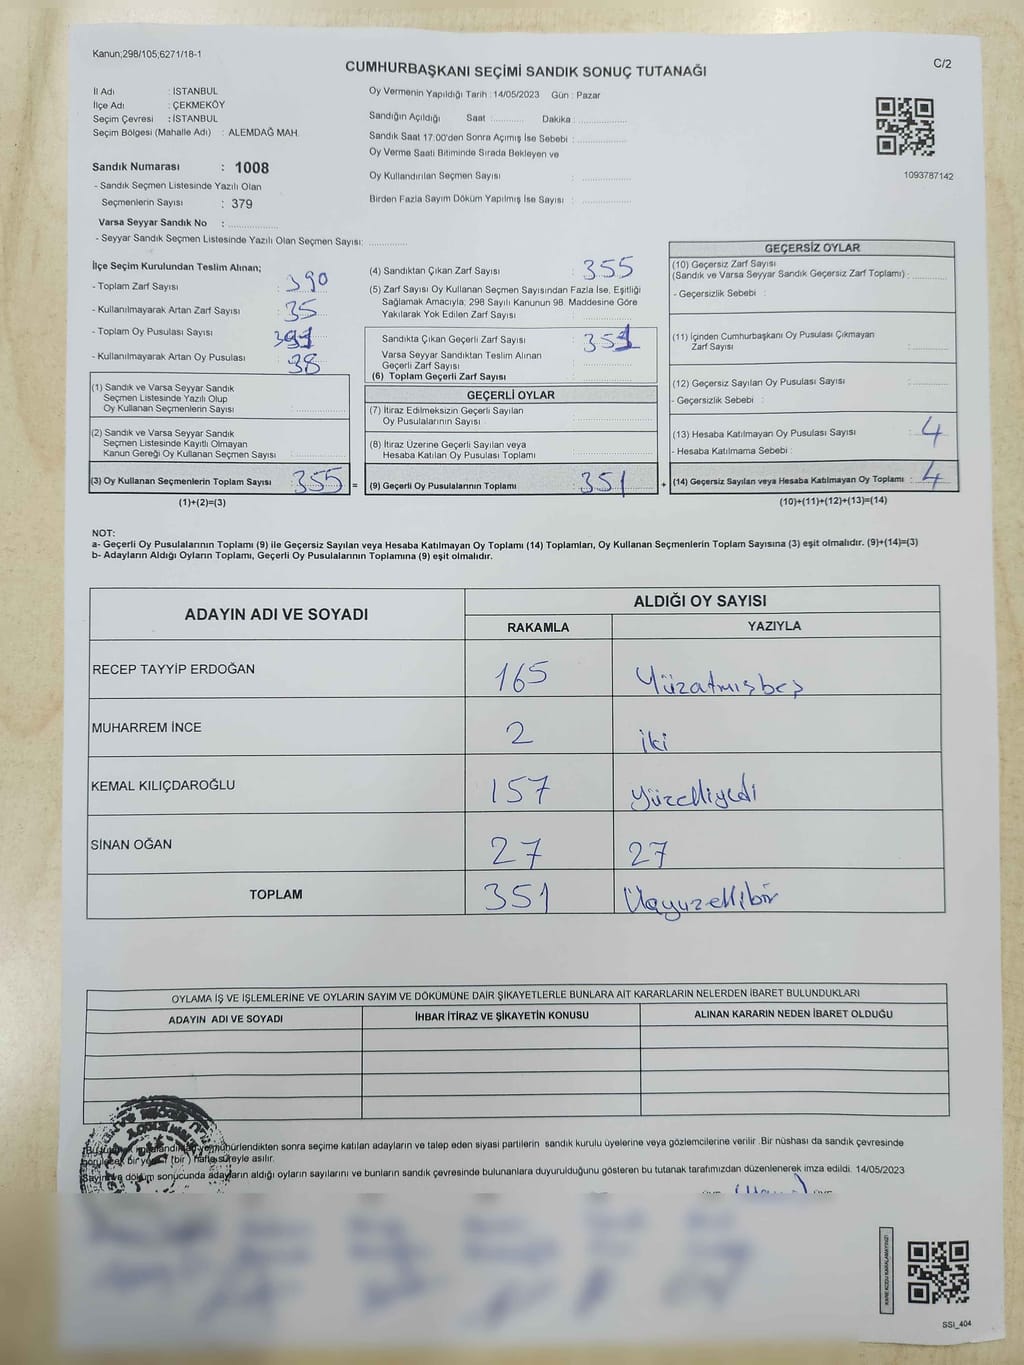 Kanun;298/105;6271/18-1
CUMHURBAŞKANI SEÇİMİ SANDIK SONUÇ TUTANAĞI
C/2
İl Adı : İSTANBUL
İlçe Adı : ÇEKMEKÖY
Seçim Çevresi : İSTANBUL
Seçim Bölgesi (Mahalle Adı) : ALEMDAĞ MAH.
Sandık Numarası : 1008
- Sandık Seçmen Listesinde Yazılı Olan
Seçmenlerin Sayısı : 379
Varsa Seyyar Sandık No : ................
- Seyyar Sandık Seçmen Listesinde Yazılı Olan Seçmen Sayısı: ............
Oy Vermenin Yapıldığı Tarih : 14/05/2023 Gün : Pazar
Sandığın Açıldığı Saat :........... Dakika :................
Sandık Saat 17:00'den Sonra Açımış İse Sebebi : ................
Oy Verme Saati Bitiminde Sırada Bekleyen ve
Oy Kullandırılan Seçmen Sayısı : ................
Birden Fazla Sayım Döküm Yapılmış İse Sayısı : ................
1093787142
İlçe Seçim Kurulundan Teslim Alınan;
- Toplam Zarf Sayısı : 390
- Kullanılmayarak Artan Zarf Sayısı : 35
- Toplam Oy Pusulası Sayısı :
- Kullanılmayarak Artan Oy Pusulası : 38
(1) Sandık ve Varsa Seyyar Sandık
Seçmen Listesinde Yazılı Olup
Oy Kullanan Seçmenlerin Sayısı : ................
(2) Sandık ve Varsa Seyyar Sandık
Seçmen Listesinde Kayıtlı Olmayan
Kanun Gereği Oy Kullanan Seçmen Sayısı : ................
(3) Oy Kullanan Seçmenlerin Toplam Sayısı : 355 =
(1)+(2)=(3)
(4) Sandıktan Çıkan Zarf Sayısı : 355
(5) Zarf Sayısı Oy Kullanan Seçmen Sayısından Fazla İse, Eşitliği
Sağlamak Amacıyla; 298 Sayılı Kanunun 98. Maddesine Göre
Yakılarak Yok Edilen Zarf Sayısı : ................
Sandıkta Çıkan Geçerli Zarf Sayısı : 351
Varsa Seyyar Sandıktan Teslim Alınan
Geçerli Zarf Sayısı : ................
(6) Toplam Geçerli Zarf Sayısı : ................
GEÇERLİ OYLAR
(7) İtiraz Edilmeksizin Geçerli Sayılan
Oy Pusulalarının Sayısı : ................
(8) İtiraz Üzerine Geçerli Sayılan veya
Hesaba Katılan Oy Pusulası Toplamı : ................
(9) Geçerli Oy Pusulalarının Toplamı : 351 +
GEÇERSİZ OYLAR
(10) Geçersiz Zarf Sayısı
(Sandık ve Varsa Seyyar Sandık Geçersiz Zarf Toplamı) : ............
- Geçersizlik Sebebi :
(11) İçinden Cumhurbaşkanı Oy Pusulası Çıkmayan
Zarf Sayısı : ............
(12) Geçersiz Sayılan Oy Pusulası Sayısı : ............
- Geçersizlik Sebebi :
(13) Hesaba Katılmayan Oy Pusulası Sayısı : 4
- Hesaba Katılmama Sebebi :
(14) Geçersiz Sayılan veya Hesaba Katılmayan Oy Toplamı : 4
(10)+(11)+(12)+(13)=(14)
NOT:
a- Geçerli Oy Pusulalarının Toplamı (9) ile Geçersiz Sayılan veya Hesaba Katılmayan Oy Toplamı (14) Toplamları, Oy Kullanan Seçmenlerin Toplam Sayısına (3) eşit olmalıdır. (9)+(14)=(3)
b- Adayların Aldığı Oyların Toplamı, Geçerli Oy Pusulalarının Toplamına (9) eşit olmalıdır.
ADAYIN ADI VE SOYADI
ALDIĞI OY SAYISI
RAKAMLA YAZIYLA
RECEP TAYYİP ERDOĞAN 165 Yüzatmışbeş
MUHARREM İNCE 2 iki
KEMAL KILIÇDAROĞLU 157 yüzelliyedi
SİNAN OĞAN 27 27
TOPLAM 351 Üçyüzellibir
OYLAMA İŞ VE İŞLEMLERİNE VE OYLARIN SAYIM VE DÖKÜMÜNE DAİR ŞİKAYETLERLE BUNLARA AİT KARARLARIN NELERDEN İBARET BULUNDUKLARI
ADAYIN ADI VE SOYADI İHBAR İTİRAZ VE ŞİKAYETİN KONUSU ALINAN KARARIN NEDEN İBARET OLDUĞU
mühürlendikten sonra seçime katılan adayların ve talep eden siyasi partilerin sandık kurulu üyelerine veya gözlemcilerine verilir .Bir nüshası da sandık çevresinde
(bir ) hafta süreyle asılır.
Sayım ve döküm sonucunda adayların aldığı oyların sayılarını ve bunların sandık çevresinde bulunanlara duyurulduğunu gösteren bu tutanak tarafımızdan düzenlenerek imza edildi. 14/05/2023
SSI_404